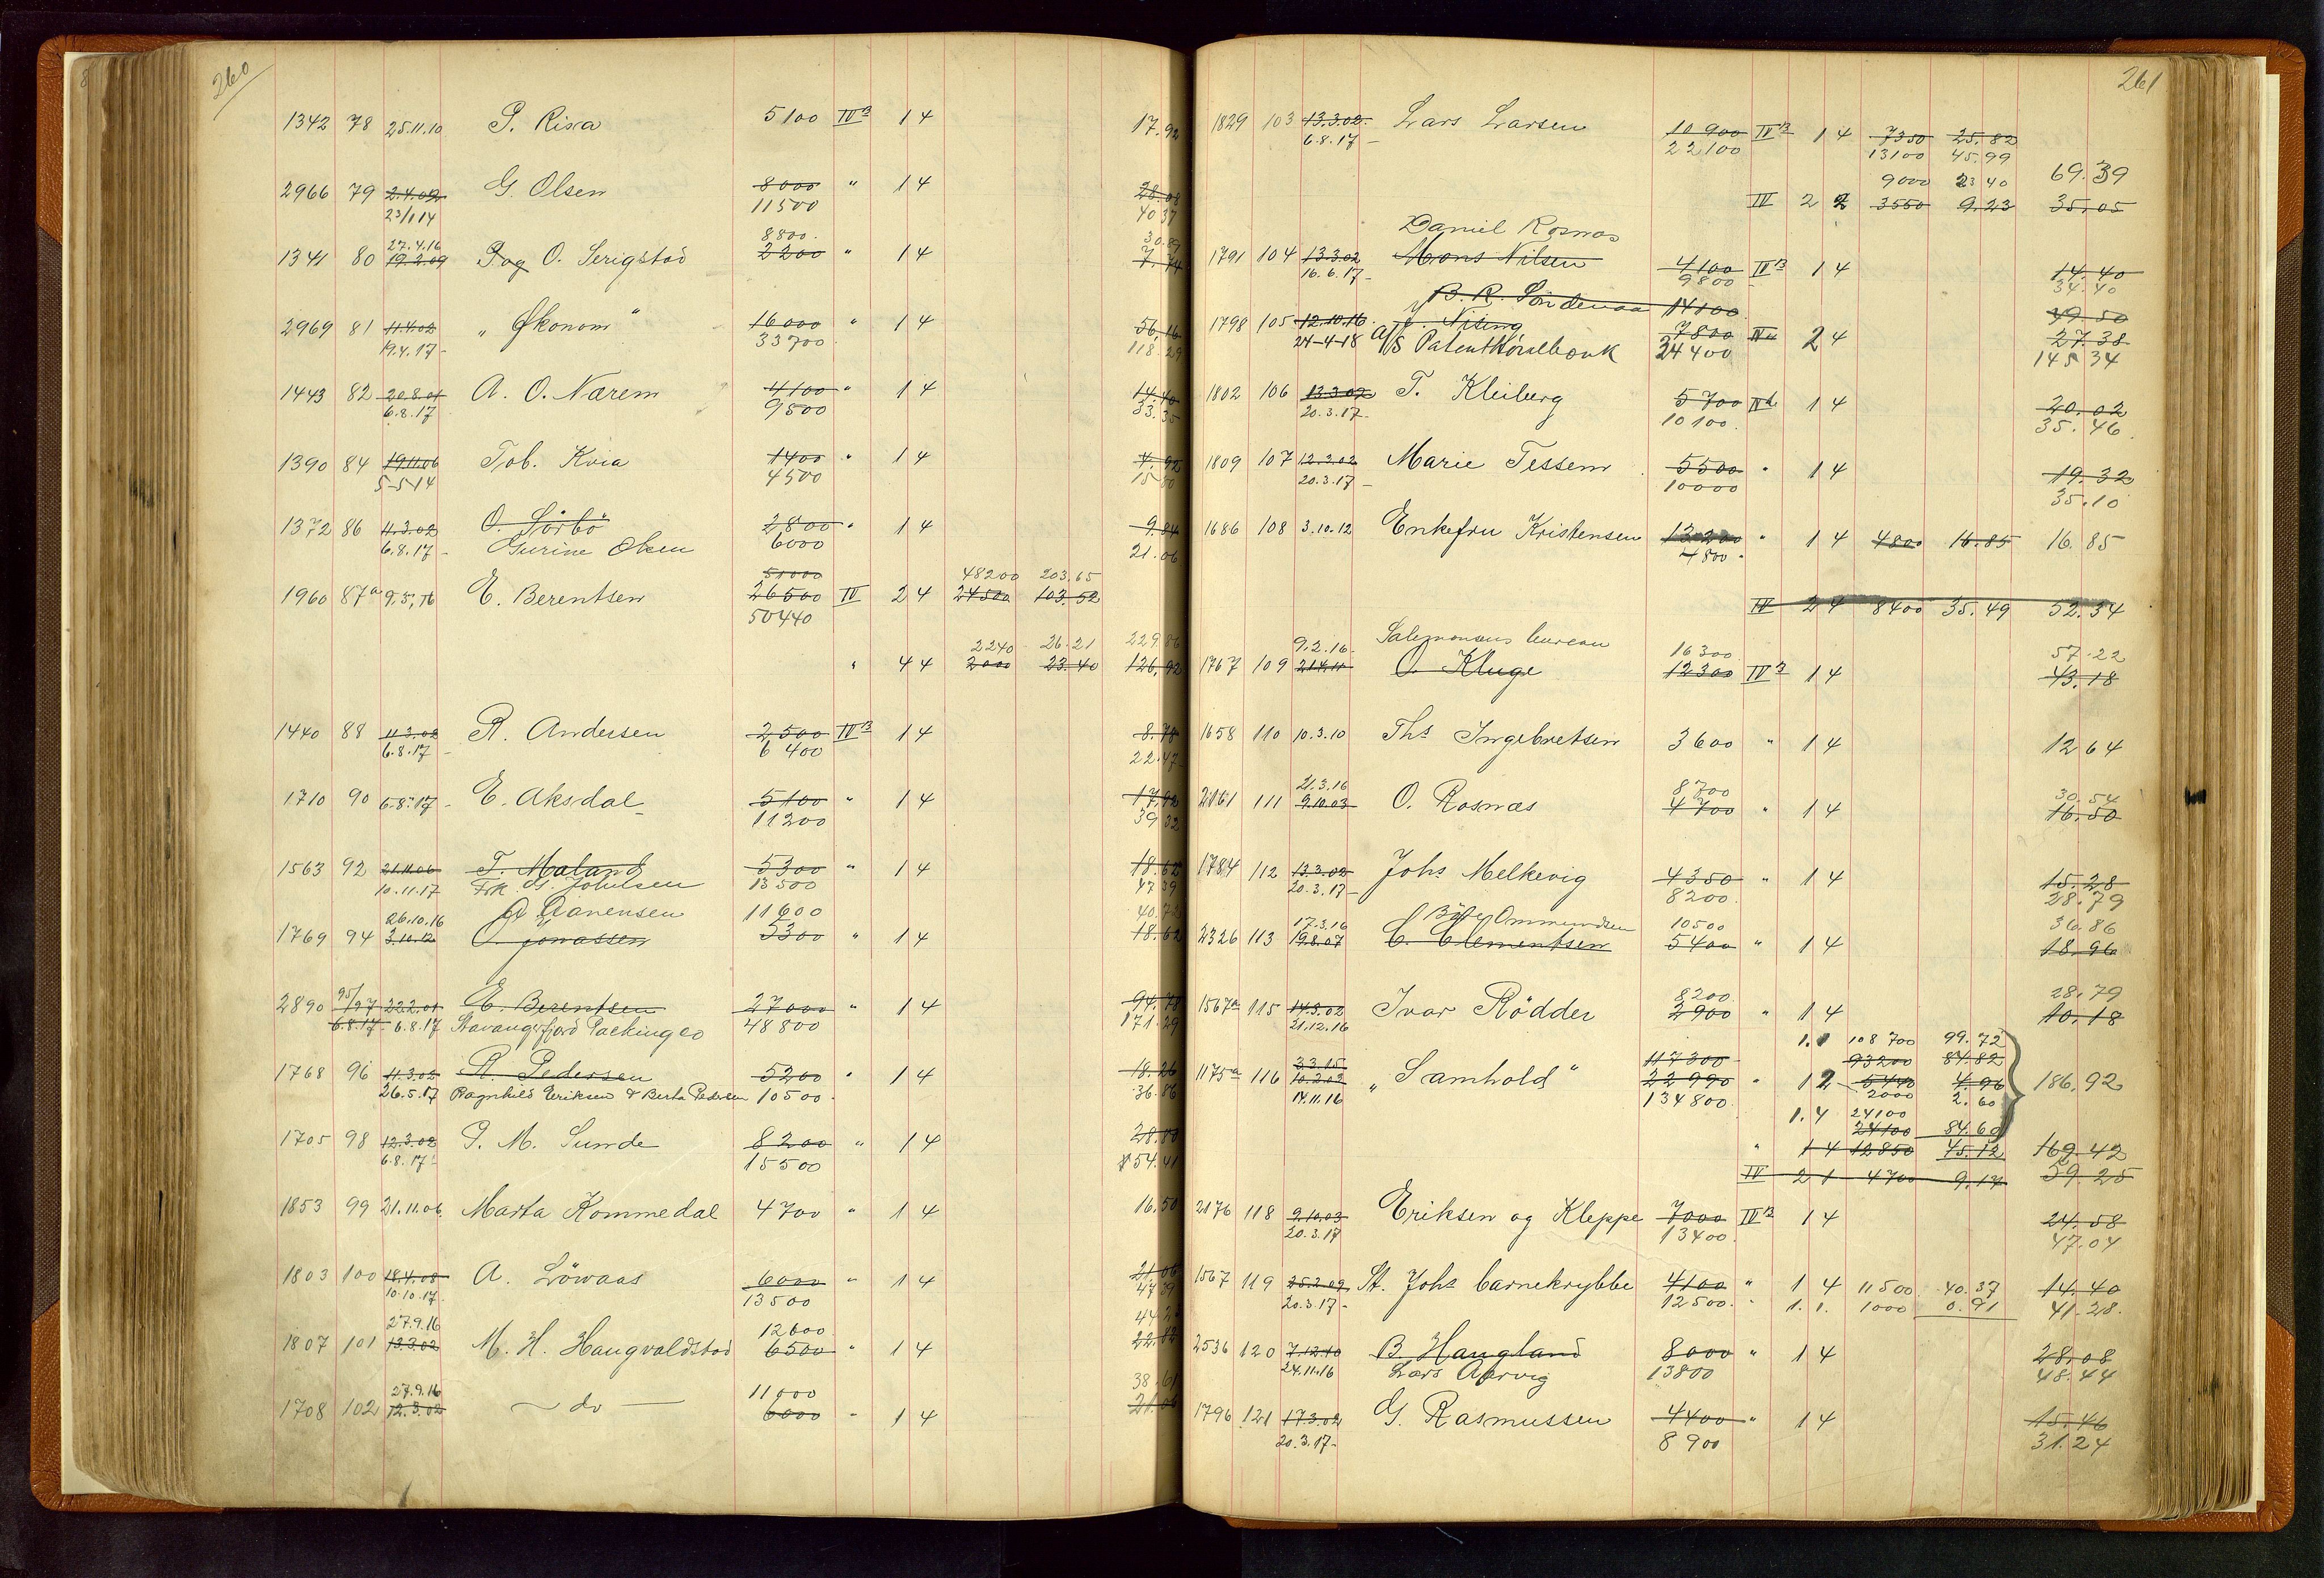 260
1342 78 25.11.10 P. Risa 5100 IV B 1 4 17.92
2966 79 2.4.02 G. Olsen 8000 " 1 4 28.08
23/1 14 11500 40 37
27.4.16 8800. 30.89
1341 80 19.2.09 P. og O. Serigstad 2200 " 1 4 7.74
2969 81 11.4.02 "Økonom" 16000 " 1 4 56,16
19.4.17- 33700 118.29
1443 82 20.8.01 A. O. Nærem 4100 " 1 4 14.40
6.8.17 9500 33.35
1390 84 19.11.06 Tob. Kvia 1400 " 1 4 4.92
5-5-14 4500 15-80
1372 86 11.3.02 O. Sörbö 2800 " 1 4 9.84
6.8.17- Gurine Olsen 6000 21.06
51000 48200 203.65
1960 87a 9.5.16 E. Berentsen 26500 IV 2 4 24500 103.52
50440
2240 26.21 229.86
" 4 4 2000 23.40 126,92
1440 88 11.3.02 R. Andersen 2500 IV B 1 4 8.78
6.8.17- 6400 22.47-
1710 90 6.8.17- E. Aksdal 5100 " 1 4 17.92
11200 39 32
1563 92 21.11.06 T. Maland 5300 " 1 4 18.62
10.11.17 Frk. G. Johnsen 13500 47 39
26.10.16 A Aanensen 11600 40.72
1769 94 3.10.12 O. Jonassen 5300 " 1 4 18.62
2890 95/97 22.2.01 E. Berentsen 27000 " 1 4 94.78
6.8.17- 6.8.17 Stavangerfjord Packing co 48800 171.29
1768 96 11.3.02 R. Pedersen 5200 " 1 4 18.26
26.5.17 Ragnhild Eriksen & Berta Pedersen 10500 36.86
1705 98 12.3.02 P. M. Sunde 8200 " 1 4 28.80
6.8.17- 15500 54.41
1853 99 21.11.06. Marta Kommedal 4700 " 1 4 16.50
1803 100 18.4.08 A. Löwaas 6000 " 1 4 21.06
10.10.17. 13500 47 39
27.9.16 12600 44.2
1807 101 13.3.02 M. H. Haugvaldstad 6500 " 1 4 22.82
27.9.16 11000 38.61
1708 102 12.3.02 — do — 6000 - 1 4 21.06
261
1829 103 13.3.02. Lars Larsen 10900 IV B 1 4 7350 25.82
6.8.17- 22100 13100 45.99
9000 23 40 69.39
IV 2 2 3550 9.23 35.05
Daniel Rosnæs
1791 104 13.3.02 Mons Nilsen 4100 IV B 1 4 14.40
16.6.17- 9800 34.40
B. R. Söndenaa 14100 49.50
1798 105 12.10.16. 7800 IV a 2 4 27.38
24-4-18 A/S 24400 145 34
1802 106 13.3.02 T. Kleiberg 5700 IV b 1 4 20.02
20.3.17- 10100. 35.46.
1809 107 12.3.02 Marie Tessem 5500 " 1 4 19.32
20.3.17- 10000 35.10
1686 108 3.10.12 Enkefru Kristensen 13200 " 1 4 4800 16.85 16.85
4800 "
IV 2 4 8400 35.49 52.34
9.2.16- Salomonsens bureau 16300 57.22
1767 109 21.4.11 O. Kluge 12300 IV B 1 4 43.18
1658 110 10.3.10 Ths Ingebretsen 3600 " 1 4 12 64
21.3.16 8700 30.54
2161 111 9.10.03 O. Rosnæs 4700 " 1 4 16.50
1784 112 13.3.02 Johs Melkevig 4350 " 1 4 15.28
20.3.17- 8200. 28.79
17.3.16 Ommundsen 10500 36.86
2326 113 19.8.07 C. Clementsen 5400 " 1 4 18.96
8200 28.79
1567a 115 14.3.02 Ivar Rödder 2900 " 1 4 10.18
21.12.16 1.1 108700 99.72
3.3.15 117300 93200 84.82
1175a 116 10.2.03 "Samhold" 22990 " 1 2 5440 4.96 186.92
14.11.16 134800 2000 2.60
1.4 24100
24100 84.60
" 1 4 12850 45.12 169.42
IV 2 1 4700 9.17 59.25
2176 118 9.10.03 Eriksen og Kleppe 7000 IV B 1 4 24.58
20.3.17 13400. 47.04
1567 119 25.2.09 St. Johs barnekrybbe 4100 " 1 4 11500 40.37 14.40
20.3.17- 12500. 1.1. 1000 0.91 41.28.
2536 120 7.12.10 B Haugland 8000 " 1 4 28.08
24.11.16 Lars Aarvig 13800 48.44
1796 121 17.3.02 G. Rasmussen 4400 " 1 4 15.46
20.3.17- 8900 31.24